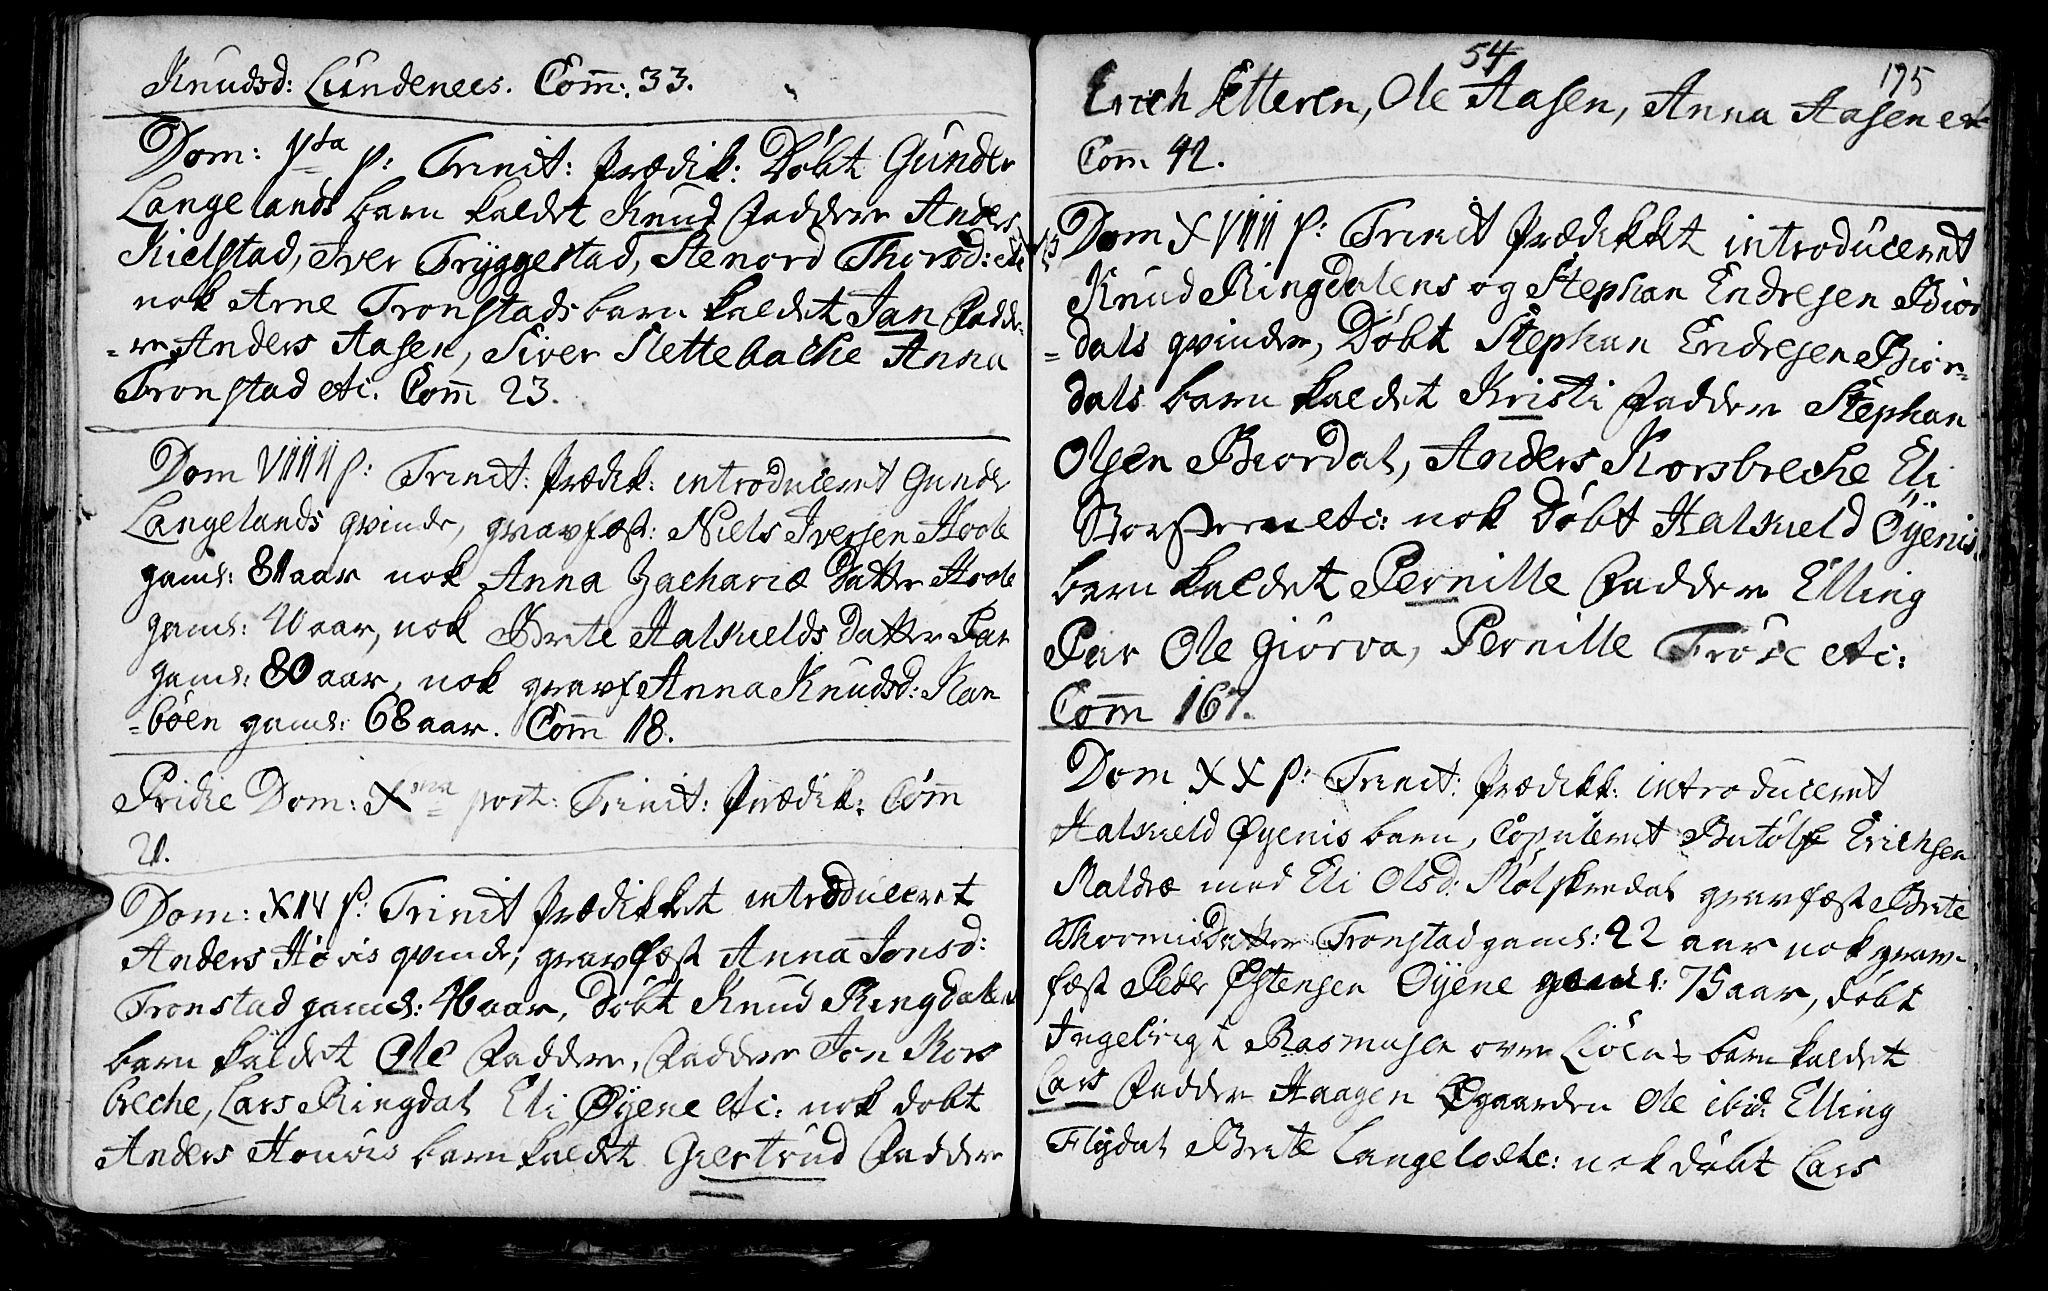 Knudsd: Lundenees. Com̄: 33.
Dom: V<sup>ta</sup> p: Trinit: Prædik: Døbt Gunder
Langelands barn kaldet Knud Faddere Anders
Kielstad, Iver Tryggestad, Stenord Thorsd: etc
nok Arne Tronstads barn kaldet Jan Fadde-
-re Anders Aasen, Siver Slettebache Anna
Tronstad etc. Com̄ 23.
Dom VIIII p: Trinit: Prædik: introduceret Gunder
Langelands qvinde, gravfæst: Niels Iversen Hoole
gaml: 81 aar nok Anna Zachariæ Datter Hoole
gaml: 40 aar, nok Brete Halsields Datter Par
gaml: 80 aar, nok gravf Anna Knudsd: Ram
-böen gaml: 68 aar. Com̄ 18.
Pridie Dom: X<sup>ma</sup> post: Trinit: Prædik: Com̄
21.
Dom: XIV p: Trinit Prædikket introduceret
Anders Hövis qvinde, gravfæst Anna Jonsd:
Tronstad gaml: 46 aar, Døbt Knud Ringdalens
barn kaldet Ole Faddere, Faddere Jon Kors
breche, Lars Ringdal Eli Øyene etc: nok døbt
Anders Houvis barn kaldet Giertrud Faddere
54
175
Erich Sætteren, Ole Aasen, Anna Aasen etc
Com̄ 42.
Dom XVIIII p: Trinit Prædikket introduceret
Knud Ringdalens og Stephan Endresen Biör
-dals qvinder, Døbt Stephan Endresen Biör-
dals barn kaldet Kristi Faddere Stephan
Olsen Biordal, Anders Korsbreche Eli
etc: nok Døbt Halsield Öyenis
barn kaldet Pernille Faddere Elling
Par Ole Giörva, Pernille Frøse etc:
Com̄ 167.
Dom XX p: Trinit: Prædikk: introduceret
Halsield Øyenis barn, Copuleret Butölf Erichsen
Raldræ med Eli Olsd: Mölskredal gravfæst Brete
Thormisdatter Tronstad gaml: 22 aar nok grav-
fæst Peder Östensen Öyene gaml: 75 aar, døbt
Ingebrigt Rasmusen over Liöens barn kaldet
Lars Faddere Haagen Øgaarden Ole ibid: Elling
Flydal Brete Langeloetc: nok døbt Lars